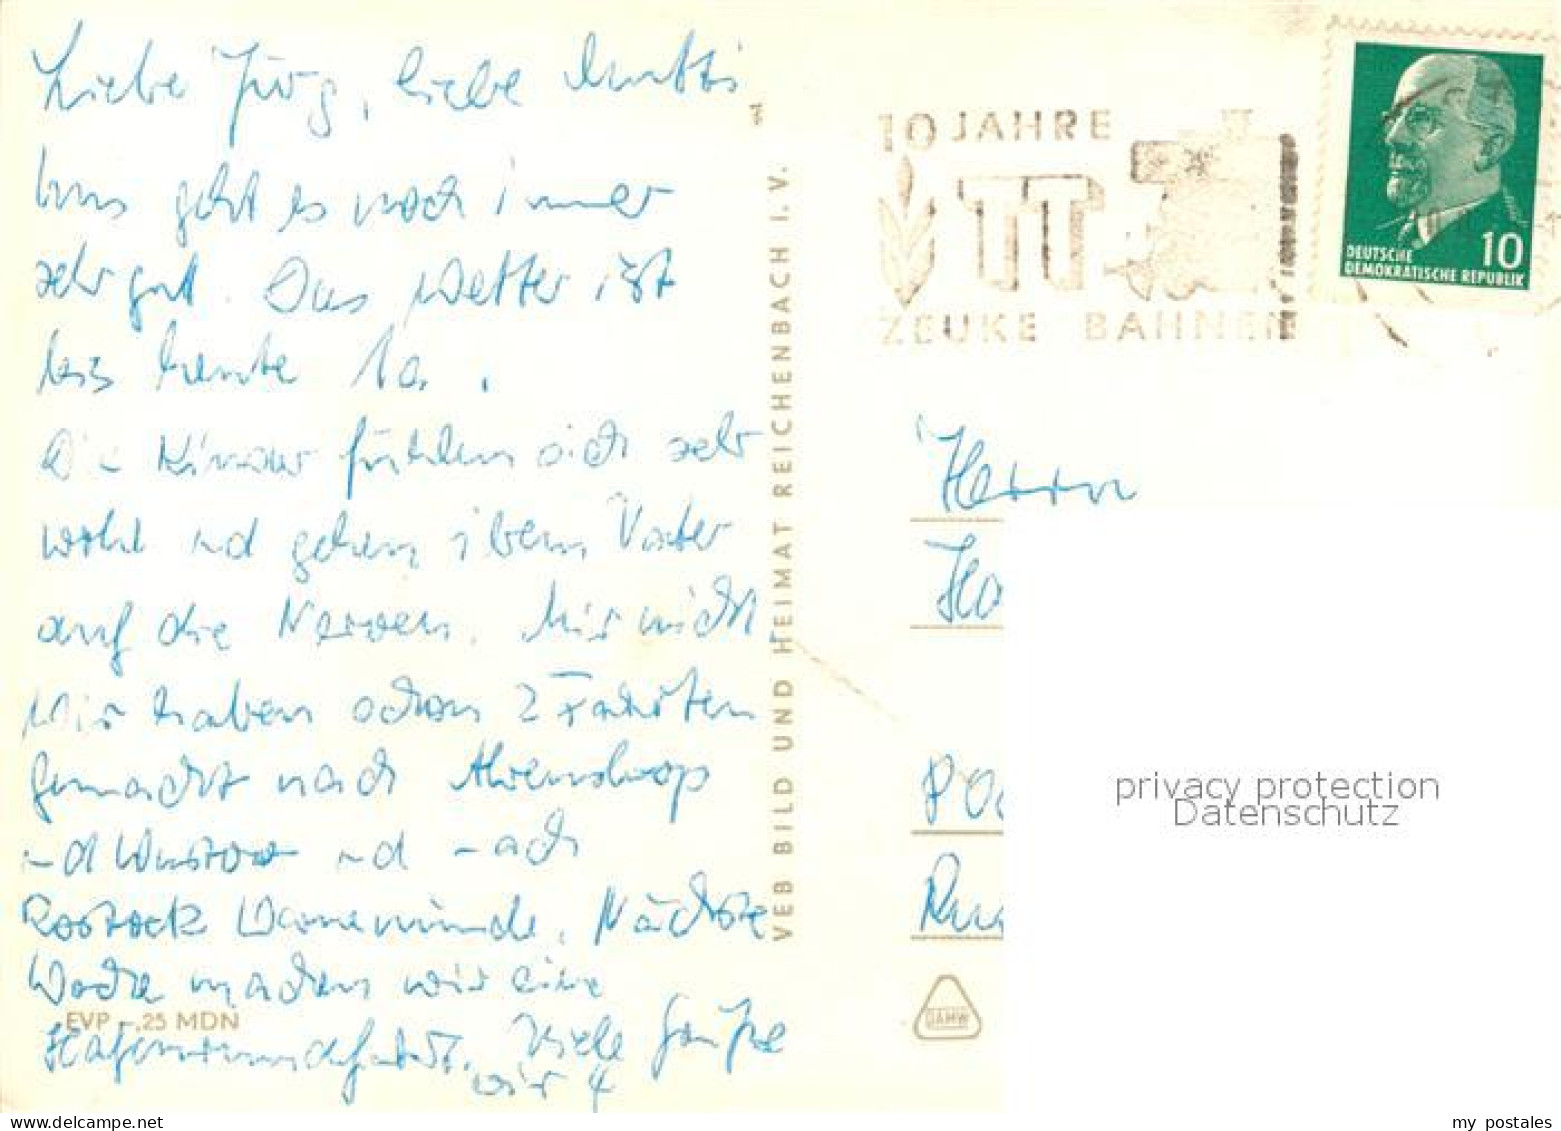 Liebe Jörg, liebe Mutti
Uns geht es noch immer
sehr gut. Das Wetter ist
bis heute 1a.
Die Kinder fühlen sich sehr
wohl und gehen ihrem Vater
auf die Nerven. Mir nicht
Wir haben schon 2 Fahrten
gemacht nach Ahrenshoop
und Wustrow und nach
Rostock Warnemünde. Nächste
Woche machen wir eine
Hafenrundfahrt. Viele Grüße
wir 4
EVP -,25 MDN
VEB BILD UND HEIMAT REICHENBACH I. V.
10 JAHRE
TT
ZEUKE BAHNEN
DEUTSCHE
DEMOKRATISCHE REPUBLIK
10
Herrn
DAMW
privacy protection
Datenschutz
my postales